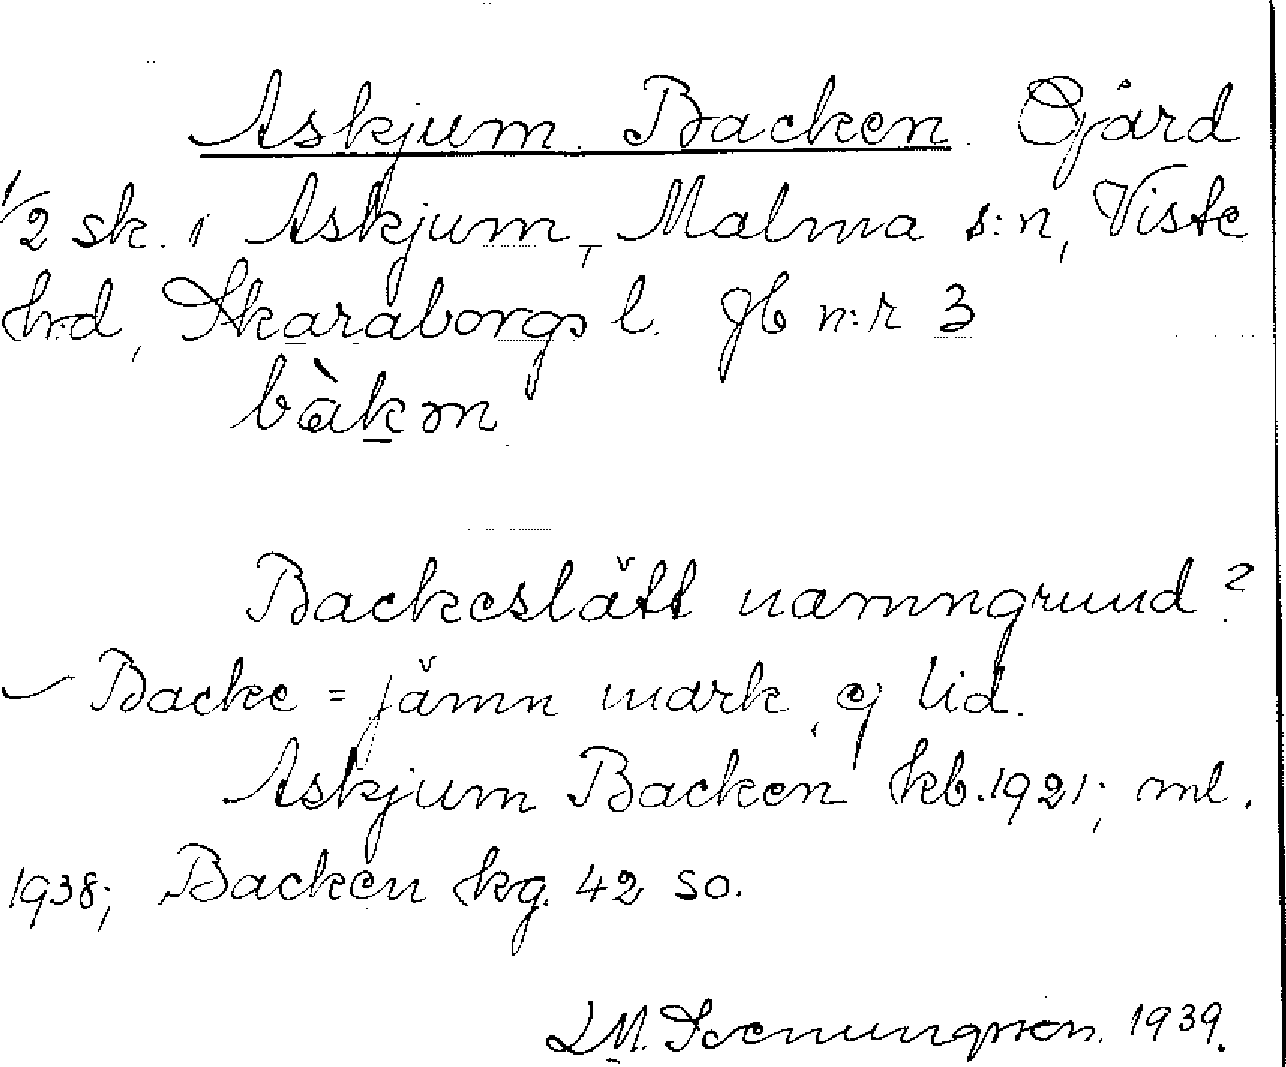 Askjum Backen. Gård
1/2 sk. i Askjum, Malma s:n, Viste
hrd, Skaraborgs l. gb n:r 3
bàkm
Backeslätt namngrund?
Backe = jämn mark, ej lid.
Askjum Backen kb. 1921; ml.
1938; Backen kg. 42 so.
L M. Svenungsson. 1939.